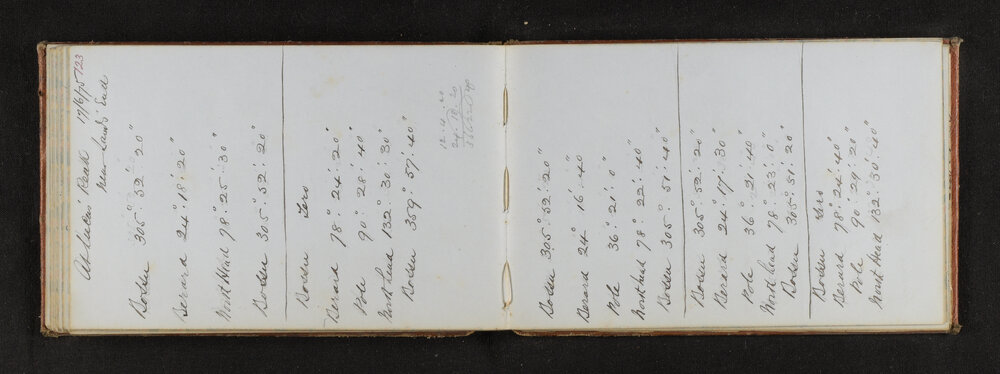 17/6/75 123
near Land's End
Boden 305° 52' 20"
Berard 24° 18' 20"
North Head 78° 25' 30"
Boden 305° 52' 20"
Boden Zero
Berard 78° 24' 20"
Pole 90° 28' 40"
North head 132° 30' 30"
Boden 359° 57' 40"
Boden 305° 52' 20"
Berard 24° 16' 40"
Pole 36° 21' 0"
North head 78° 22' 40"
Boden 305° 51' 40"
Boden 305° 52' 20"
Berard 24° 17' 30"
Pole 36° 21' 40"
North head 78° 23' 0"
Boden 305° 51' 20"
Boden Zero
Berard 78° 24' 40"
Pole 90° 29' 20"
North head 132° 30' 40"